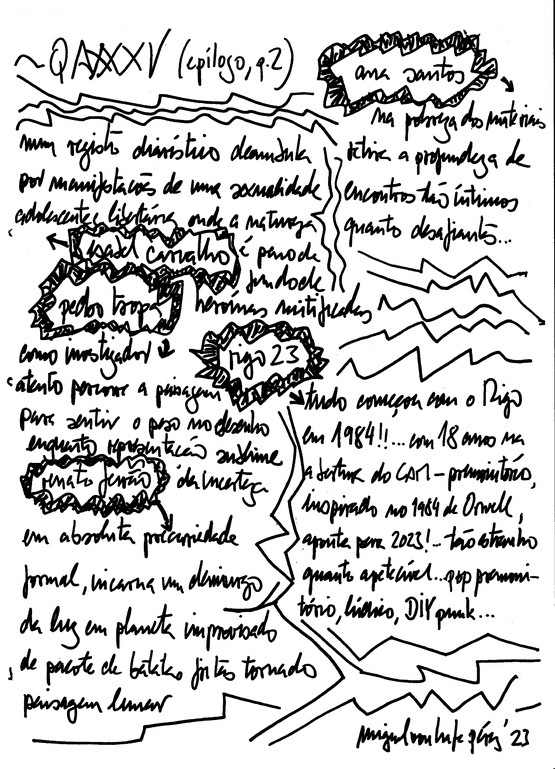 ~QAXXXV (epílogo, q.2)
ana santos
na pobreza dos materiais
retira a profundeza de
encontros tão íntimos
quanto desafiantes...
num registo diarístico
por manifestações de uma sexualidade
adolescente e libertária onde a natureza
isabel carvalho
é pano de
fundo de
heroínas mitificadas
pedro tropa
como investigador
atento percorre a paisagem
para sentir o peso no desenho
enquanto representação sublime
da incerteza
rigo 23
tudo começou com o Rigo
em 1984!!...com 18 anos na
a leitura do CAM - premonitório,
inspirado no 1984 de Orwell,
aponta para 2023!...tão estranho
quanto apetecível...pop premoni-
tório, lúdico, DIY punk...
renato ferrão
em absoluta precariedade
formal, incarna um demiurgo
da luz em planeta improvisado
de pacote de batatas fritas tornado
paisagem lunar
'23